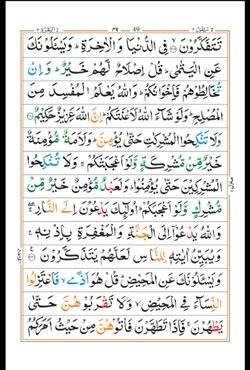 سيقول ٢ ٣٩ 49 البقرة ٢
تَتَفَكَّرُوْنَ ۙ فِي الدُّنْيَا وَالْاٰخِرَةِ ؕ وَيَسْـَٔلُوْنَكَ
عَنِ الْيَتٰمٰى ؕ قُلْ اِصْلَاحٌ لَّهُمْ خَيْرٌ ؕ وَاِنْ
تُخَالِطُوْهُمْ فَاِخْوَانُكُمْ ؕ وَاللّٰهُ يَعْلَمُ الْمُفْسِدَ مِنَ
الْمُصْلِحِ ؕ وَلَوْ شَآءَ اللّٰهُ لَاَعْنَتَكُمْ ؕ اِنَّ اللّٰهَ عَزِيْزٌ حَكِيْمٌ
وَلَا تَنْكِحُوا الْمُشْرِكٰتِ حَتّٰى يُؤْمِنَّ ؕ وَلَاَمَةٌ مُّؤْمِنَةٌ
خَيْرٌ مِّنْ مُّشْرِكَةٍ وَّلَوْ اَعْجَبَتْكُمْ ۚ وَلَا تُنْكِحُوا
الْمُشْرِكِيْنَ حَتّٰى يُؤْمِنُوْا ؕ وَلَعَبْدٌ مُّؤْمِنٌ خَيْرٌ مِّنْ
مُّشْرِكٍ وَّلَوْ اَعْجَبَكُمْ ؕ اُولٰٓئِكَ يَدْعُوْنَ اِلَى النَّارِ ۖۚ
وَاللّٰهُ يَدْعُوْٓا اِلَى الْجَنَّةِ وَالْمَغْفِرَةِ بِاِذْنِهٖ ۚ
وَيُبَيِّنُ اٰيٰتِهٖ لِلنَّاسِ لَعَلَّهُمْ يَتَذَكَّرُوْنَ
وَيَسْـَٔلُوْنَكَ عَنِ الْمَحِيْضِ ؕ قُلْ هُوَ اَذًى ۙ فَاعْتَزِلُوا
النِّسَآءَ فِي الْمَحِيْضِ ۙ وَلَا تَقْرَبُوْهُنَّ حَتّٰى
يَطْهُرْنَ ۚ فَاِذَا تَطَهَّرْنَ فَاْتُوْهُنَّ مِنْ حَيْثُ اَمَرَكُمُ